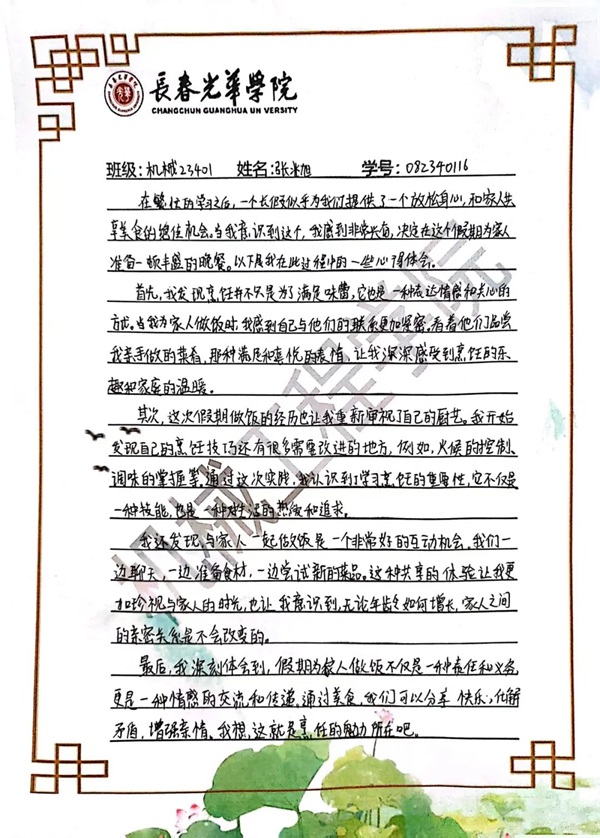 長春光華學院
CHANGCHUN GUANGHUA UN VERSITY
班级:机械23401 姓名:张旭 学号:082340116
在繁忙的学习之后,一个长假似乎为我们提供了一个放松身心,和家人共
享美食的绝佳机会。当我意识到这个,我感到非常兴奋,决定在这个假期为家人
准备一顿丰盛的晚餐。以下是我在此过程中的一些心得体会。
首先,我发现烹饪并不只是为了满足味蕾,它也是一种表达情感和关心的
方式。当我为家人做饭时,我感到自己与他们的联系更加紧密。看着他们品尝
我亲手做的菜肴,那种满足和喜悦的表情,让我深深感受到烹饪的乐
趣和家庭的温暖。
其次,这次假期做饭的经历也让我重新审视了自己的厨艺。我开始
发现自己的烹饪技巧还有很多需要改进的地方,例如,火候的控制、
调味的掌握等。通过这次实践,我认识到了学习烹饪的重要性,它不仅是
一种技能,也是一种对生活的热爱和追求。
我还发现,与家人一起做饭是一个非常好的互动机会。我们一
边聊天,一边准备食材,一边尝试新的菜品。这种共享的体验让我更
加珍视与家人的时光,也让我意识到,无论年龄如何增长,家人之间
的亲密关系是不会改变的。
最后,我深刻体会到,假期为家人做饭不仅是一种责任和义务,
更是一种情感的交流和传递。通过美食,我们可以分享快乐,化解
矛盾,增强亲情。我想,这就是烹饪的魅力所在吧。
机械工程学院